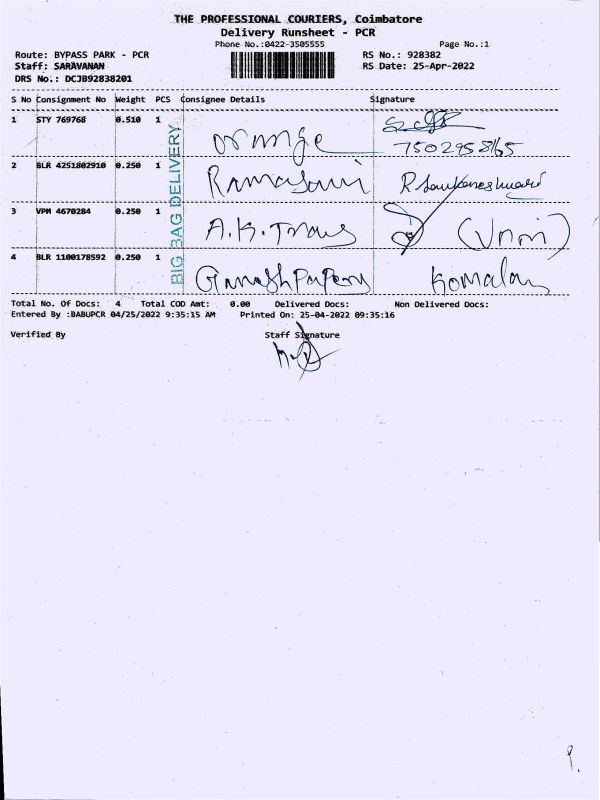 THE PROFESSIONAL COURIERS, Coimbatore
Delivery Runsheet - PCR
Phone No.:0422-3505555 Page No.:1
Route: BYPASS PARK - PCR RS No.: 928382
Staff: SARAVANAN RS Date: 25-Apr-2022
DRS No.: DCJB92838201
S No Consignment No Weight PCS Consignee Details Signature
1 STY 769768 0.510 1 orange
7502958165
2 BLR 4251802910 0.250 1 Ramasami
3 VPM 4670284 0.250 1 A.K. Trans
4 BLR 1100178592 0.250 1 Ganesh Papers Komalan
BIG BAG DELIVERY
Total No. Of Docs: 4 Total COD Amt: 0.00 Delivered Docs: Non Delivered Docs:
Entered By :BABUPCR 04/25/2022 9:35:15 AM Printed On: 25-04-2022 09:35:16
Verified By Staff Signature